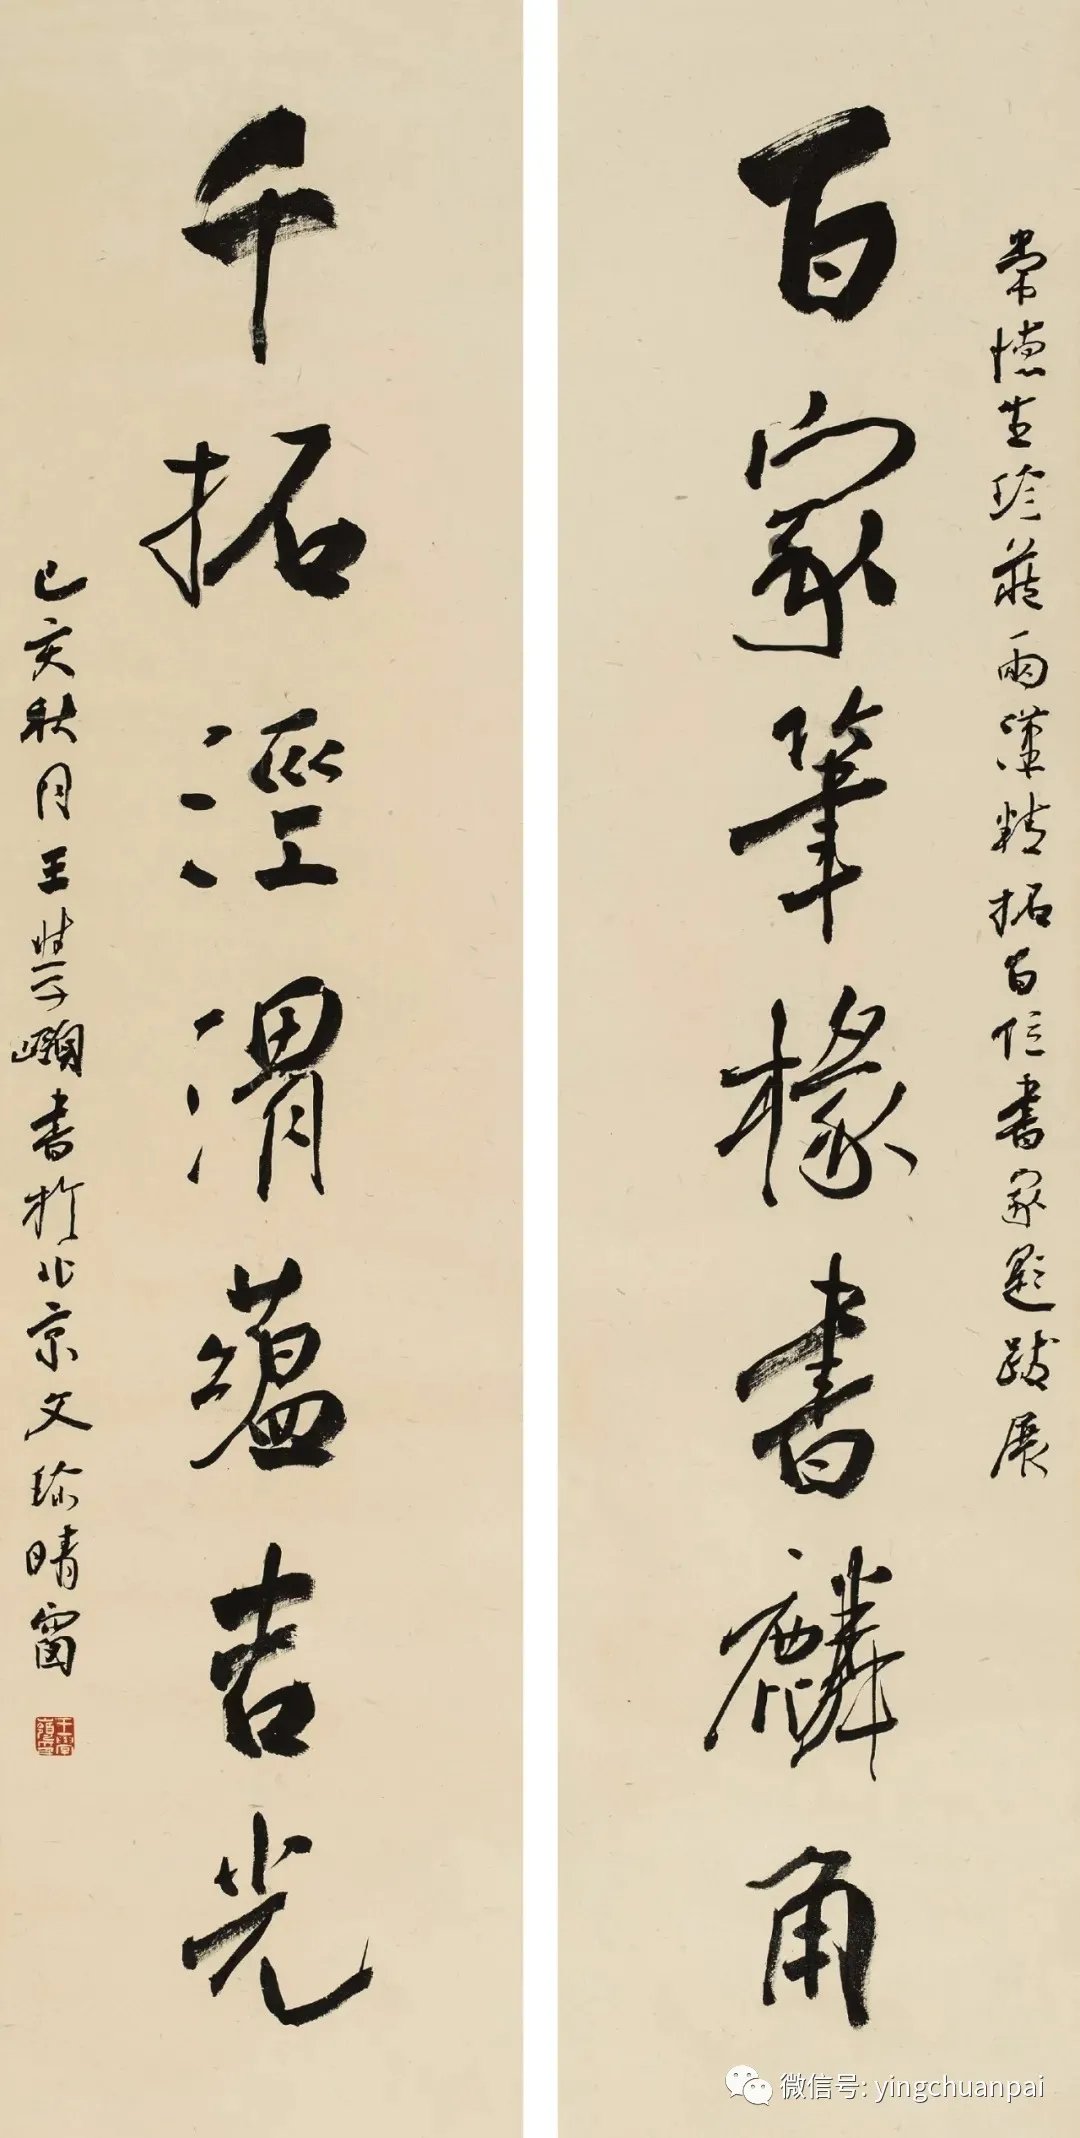 常德生珍藏兩漢精拓百位書家題跋展
百家筆椽書麟角
千拓涇渭蘊吉光
己亥秋月王學嶺書於北京文晴窗
微信号: yingchuanpai